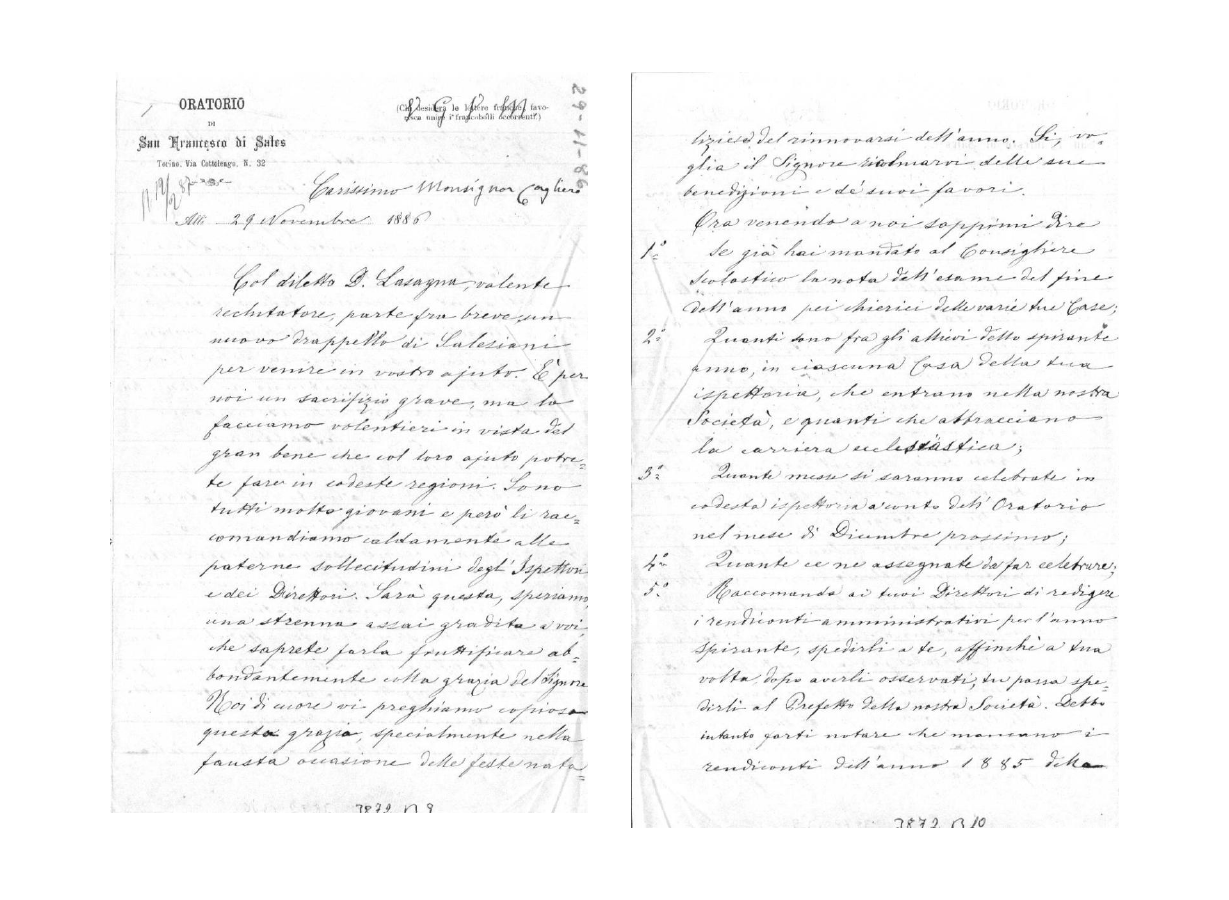 ORATORIO
DI
San Francesco di Sales
Torino, Via Cottolengo, N. 32
(Chi desidera le lettere franche, favo-
risca unire i francobolli occorrenti.)
29-11-86
Carissimo Monsignor Cagliero
Alli 29 Novembre 1886
Col diletto D. Lasagna, valente
reclutatore, parte fra breve un
nuovo drappello di Salesiani
per venire in vostro ajuto. È per
noi un sacrifizio grave, ma lo
facciamo volentieri in vista del
gran bene che col loro ajuto potre=
te fare in codeste regioni. Sono
tutti molto giovani e però li rac=
comandiamo caldamente alle
paterne sollecitudini degl' Ispettori
e dei Direttori. Sarà questa, speriamo,
una strenna assai gradita a voi,
che saprete farla fruttificare ab=
bondantemente colla grazia del Signore
Noi di cuore vi preghiamo copiosa
questa grazia, specialmente nella
fausta occasione delle feste nata=
3872 B 9
lizie e del rinnovarsi dell'anno. Sì, vo=
glia il Signore ricolmarvi delle sue
benedizioni e de' suoi favori.
Ora venendo a noi sappimi dire
1.° Se già hai mandato al Consigliere
scolastico la nota dell'esame del fine
dell'anno pei chierici delle varie tue Case;
2.° Quanti sono fra gli allievi dello spirante
anno, in ciascuna Casa della tua
ispettoria, che entrano nella nostra
Società, e quanti che abbracciano
la carriera ecclesiastica;
3.° Quante messe si saranno celebrate in
codesta ispettoria a conto dell'Oratorio
nel mese di Dicembre prossimo;
4.° Quante ce ne assegnate da far celebrare;
5.° Raccomanda ai tuoi Direttori di redigere
i rendiconti amministrativi per l'anno
spirante, spedirli a te, affinchè a tua
volta, dopo averli osservati, tu possa spe=
dirli al Prefetto della nostra Società. Debbo
intanto farti notare che mancano i
rendiconti dell'anno 1885 della
3872 B 10